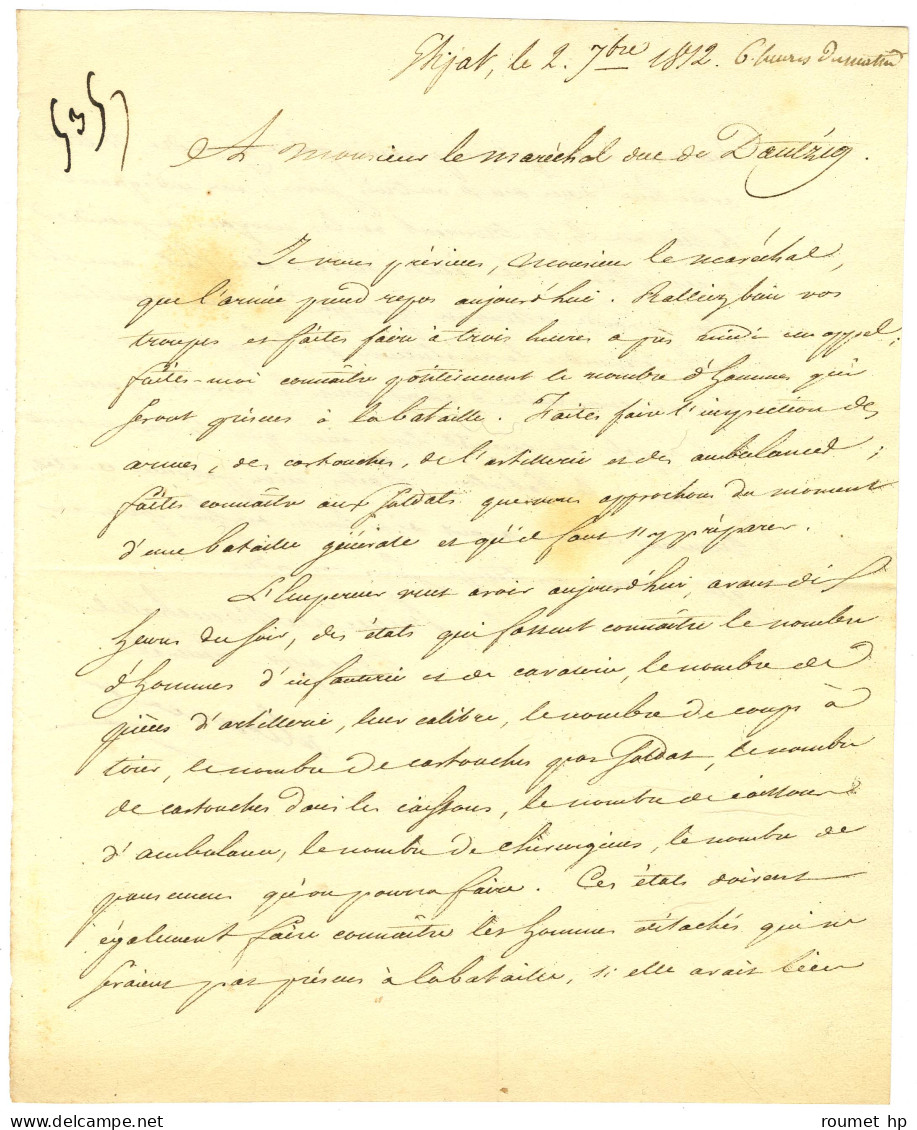 Ghjat, le 2. 7bre 1812. 6. heures du matin
A Monsieur le maréchal duc de Dantzig.
Je vous préviens, Monsieur le Maréchal,
que l'armée prend repos aujourd'hui. Ralliez bien vos
troupes et faites faire à trois heures après midi un appel;
faites-moi connaître positivement le nombre d'hommes qui
seront présens à la bataille. Faites faire l'inspection des
armes, des cartouches, de l'artillerie et des ambulances;
faites connaître aux Soldats que nous approchons du moment
d'une bataille générale et qu'il faut s'y préparer.
L'Empereur veut avoir aujourd'hui, avant dix
heures du soir, des états qui fassent connaître le nombre
d'hommes d'infanterie et de cavalerie, le nombre de
pièces d'artillerie, leur calibre, le nombre de coups à
tirer, le nombre de cartouches par Soldat, le nombre
de cartouches dans les caissons, le nombre de caissons
d'ambulance, le nombre de chirurgiens, le nombre de
pansemens qu'on pourra faire. Ces états doivent
également faire connaître les hommes détachés qui ne
seraient pas présens à la bataille, si elle avait lieu
roumet hp